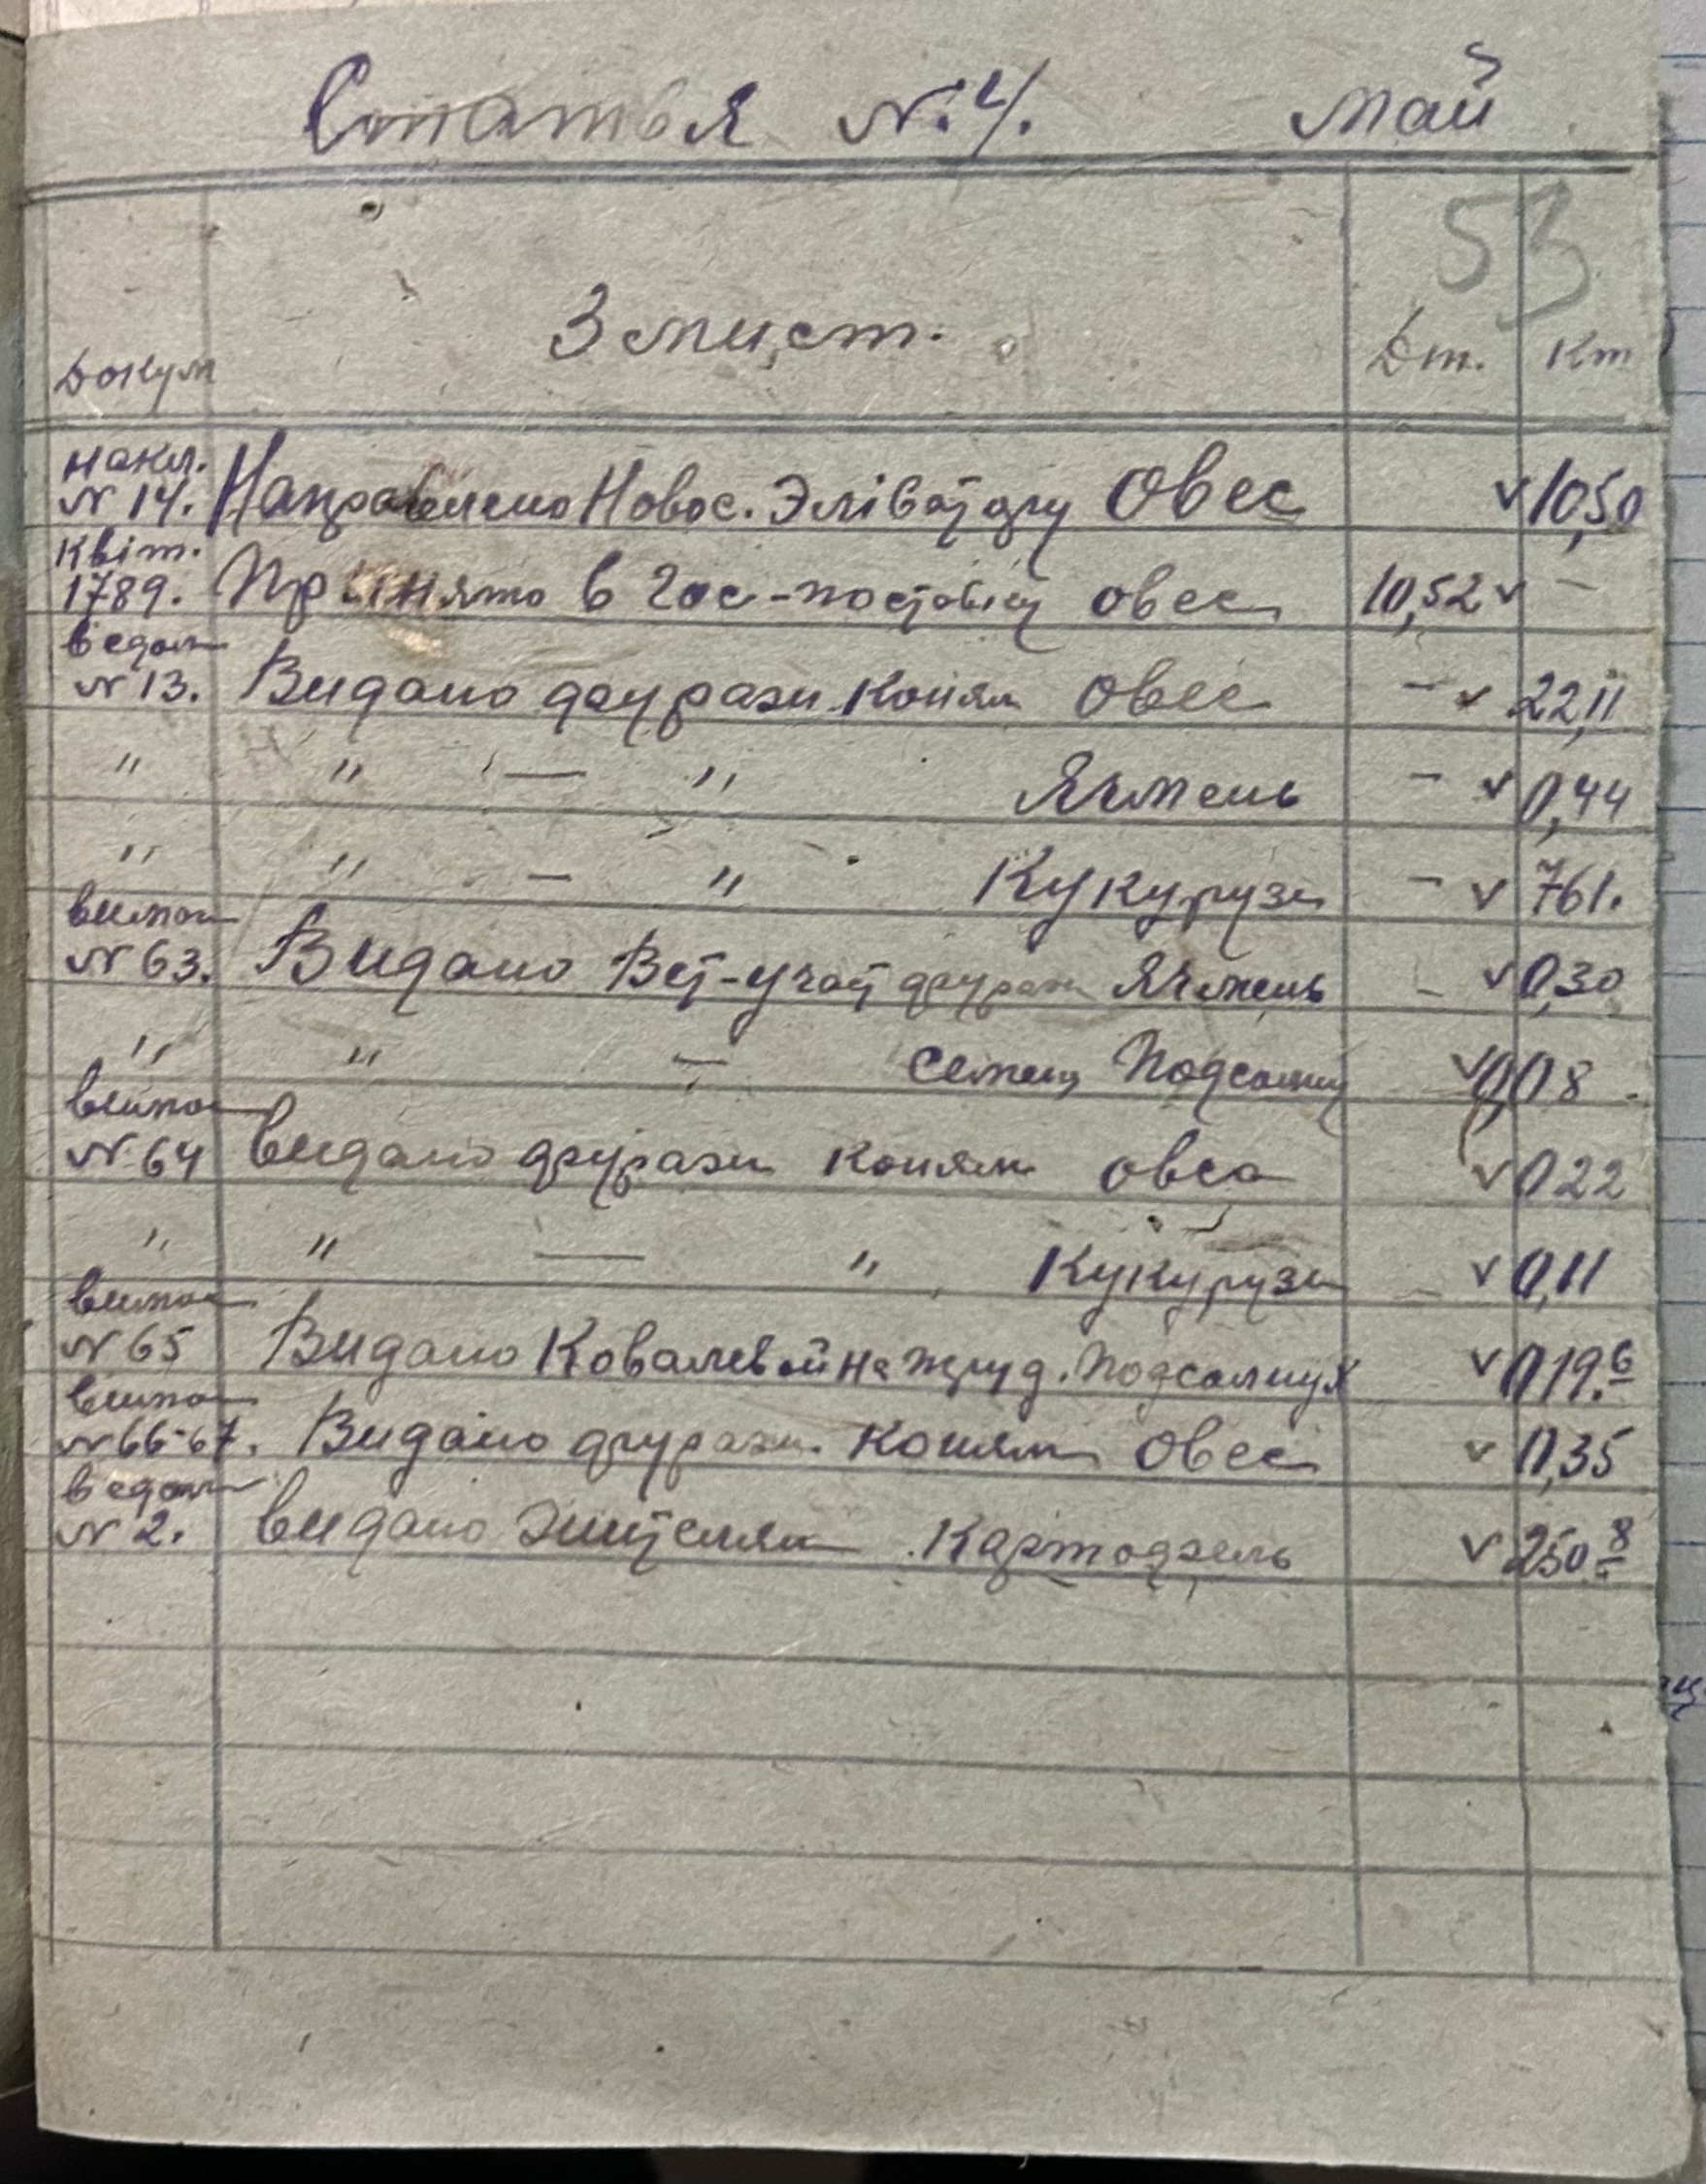 Статья №4. май
53
Докум Змист. Дт. Кт
накл.
№ 14. Направлено Новос. Элівату Овес ✓ 10,50
квіт.
1789. Прінято в гос-поставку овес 10,52 ✓ –
ведом
№ 13. Видано фуражи коням Овес – ✓ 22,11
" " — " Ячмень – ✓ 0,44
" " — " Кукурузи – ✓ 7,61.
випис
№ 63. Видано Вет-учас фуражи Ячмень – ✓ 0,30
" " — Семен Подсолну ✓ 0,08.
випис
№ 64 видано фуражи коням овса ✓ 0,22
" " — " Кукурузи – ✓ 0,11
випис
№ 65 Видано Ковалевой на труд. Подсолнух ✓ 0,19.6
випис
№ 66-67. Видано фуражи. коням Овес ✓ 0,35
ведом
№ 2. видано Жителям Картофель ✓ 250.8